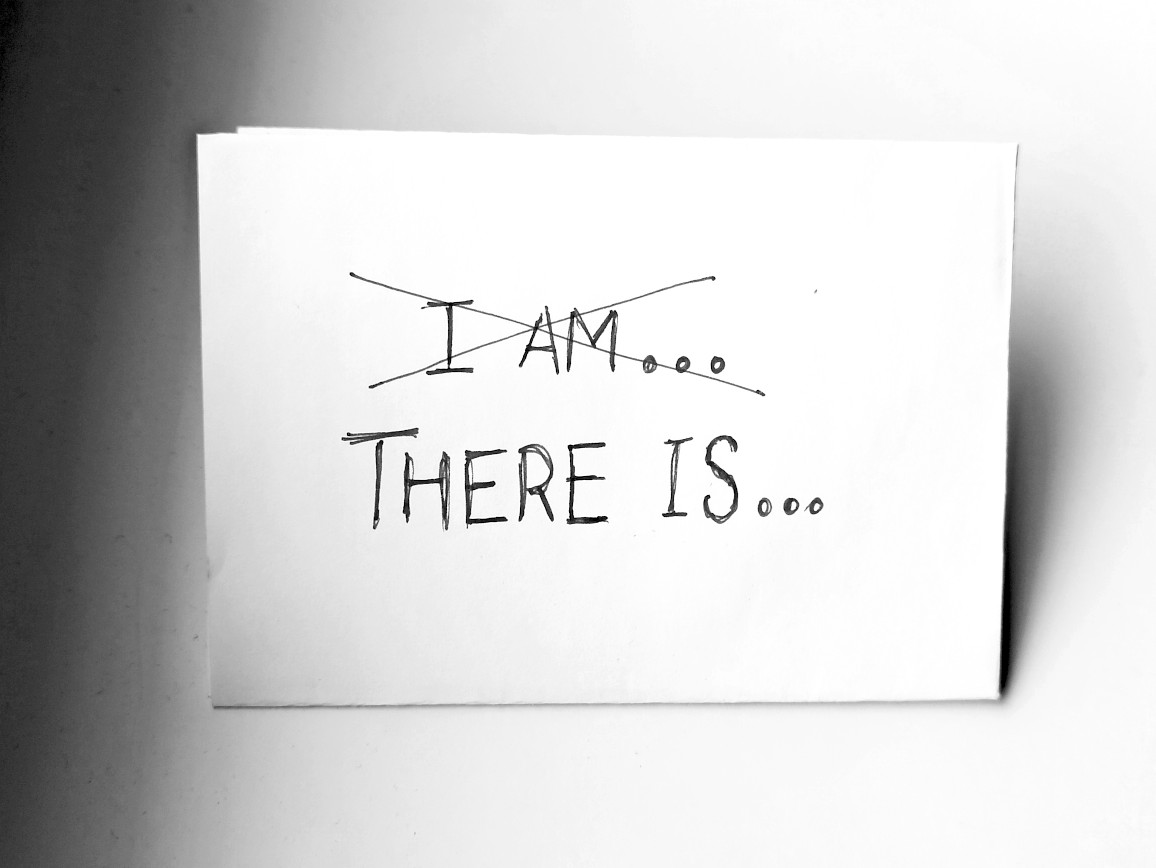 I AM...
THERE IS...